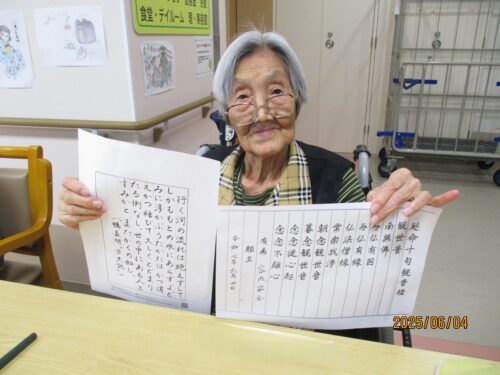 食堂・デイルーム 理・美容室
行く河の流れは絶えずして
しかももとの水にあらずよど
みに浮かぶうたかたはかつ消
えかつ結びて久しくとどまり
たる例なし世の中にある人と
すみかとまたかくの如し
鴨長明「方丈記」
延命十句観音経
観世音
南無佛
与仏有因
与仏有縁
仏法僧縁
常楽我浄
朝念観世音
暮念観世音
念念従心起
念念不離心
令和七年六月四日
願主
2025/06/04